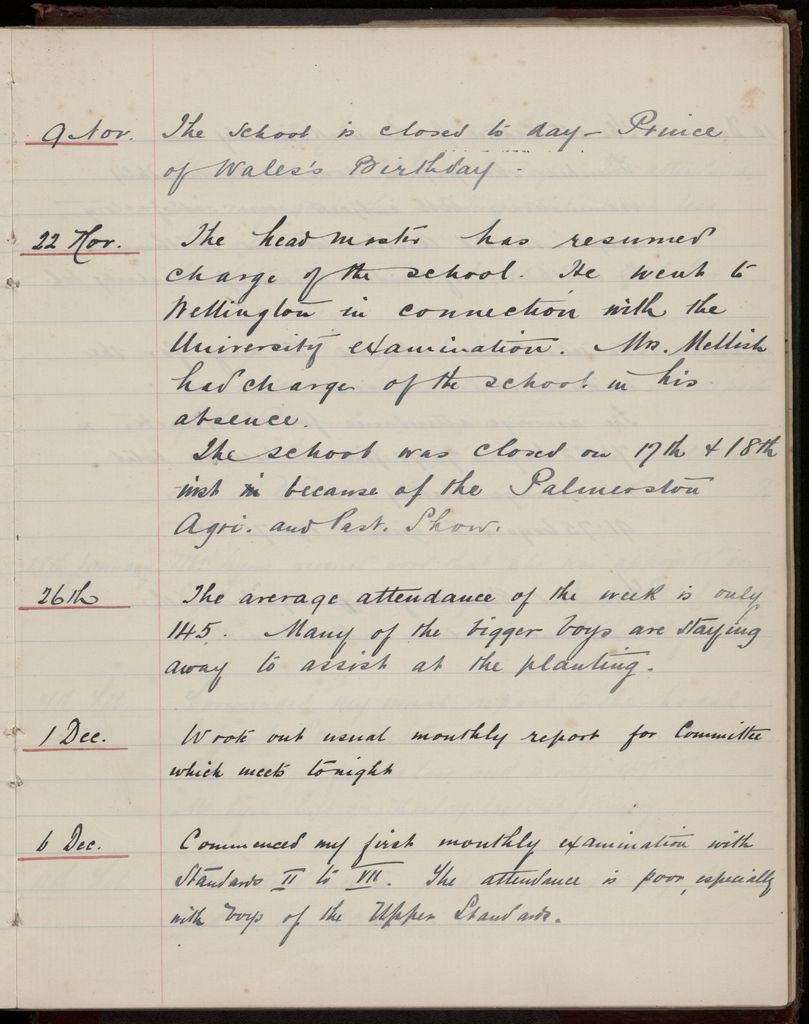 9 Nov. The School is closed to day – Prince
of Wales's Birthday.
22 Nov. The head master has resumed
charge of the school. He went to
Wellington in connection with the
University examination. Mrs. Mellish
had charge of the school in his
absence.
The school was closed on 17th & 18th
inst in because of the Palmerston
Agri. and Past. Show.
26th The average attendance of the week is only
145. Many of the bigger boys are staying
away to assist at the planting.
1 Dec. Wrote out usual monthly report for Committee
which meets tonight
6 Dec. Commenced my first monthly examination with
Standards II to VII. The attendance is poor, especially
with boys of the Upper Standards.